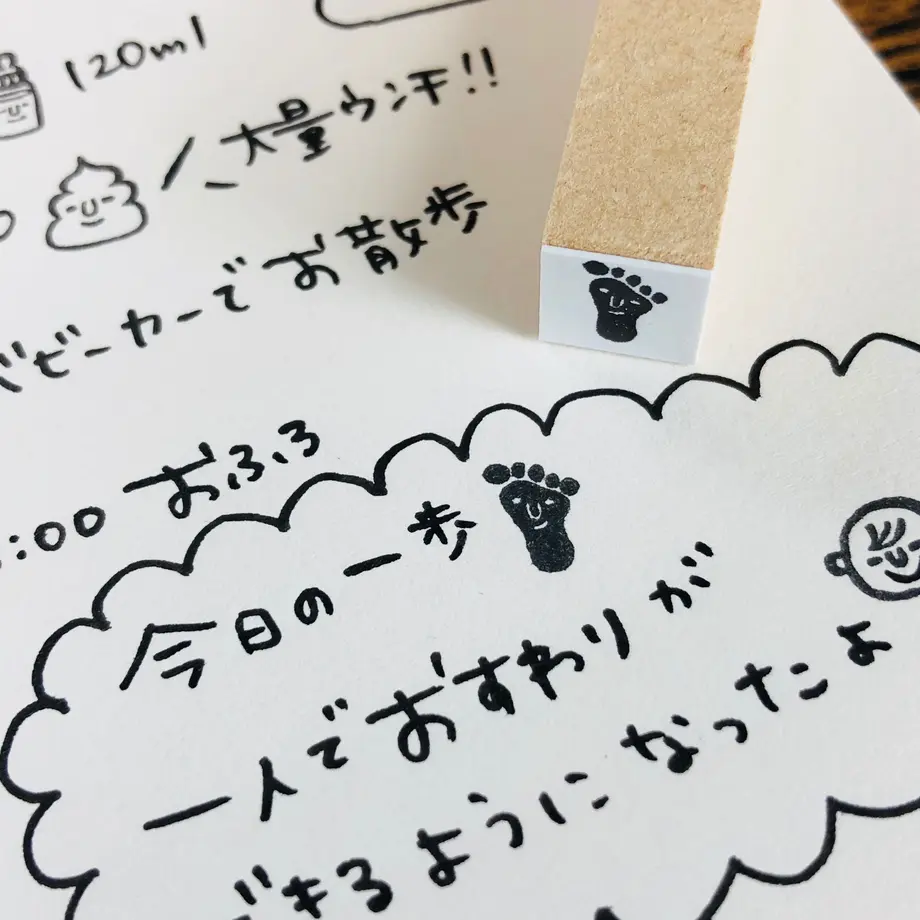 120ml
大量ウンチ!!
ベビーカーでお散歩
:00 おふろ
今日の一歩
一人でおすわりが
できるようになったよ